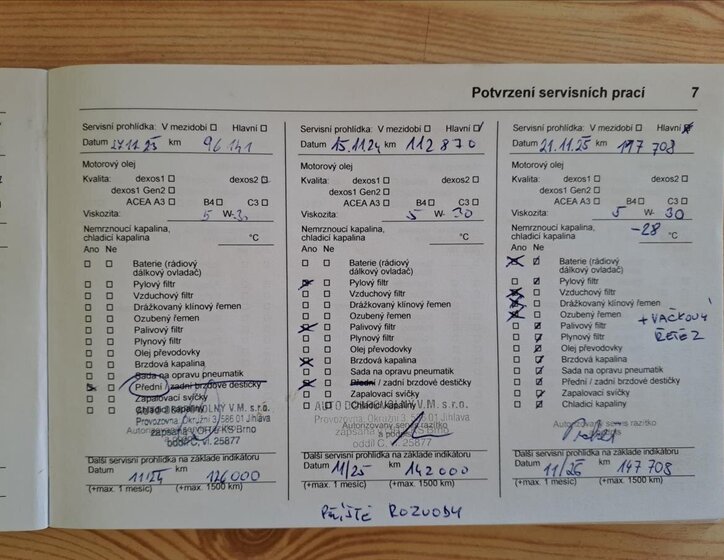 Potvrzení servisních prací 7
Servisní prohlídka: V mezidobí Hlavní
Datum 27.11.23 km 96 141
Motorový olej
Kvalita: dexos1 dexos2
dexos1 Gen2
ACEA A3 B4 C3
Viskozita: 5 W- 30
Nemrznoucí kapalina,
chladicí kapalina °C
Ano Ne
Baterie (rádiový
dálkový ovladač)
Pylový filtr
Vzduchový filtr
Drážkovaný klínový řemen
Ozubený řemen
Palivový filtr
Plynový filtr
Olej převodovky
Brzdová kapalina
Sada na opravu pneumatik
Přední / zadní brzdové destičky
Zapalovací svíčky
Chladicí kapaliny
Provozovna, Okružní 3, 586 01 Jihlava
zapsána v OR KS Brno
oddíl C, vl. 25877
Další servisní prohlídka na základě indikátoru
Datum km
11/24 126000
(+max. 1 měsíc) (+max. 1500 km)
Servisní prohlídka: V mezidobí Hlavní
Datum 15.11.24 km 112 870
Motorový olej
Kvalita: dexos1 dexos2
dexos1 Gen2
ACEA A3 B4 C3
Viskozita: 5 W- 30
Nemrznoucí kapalina,
chladicí kapalina °C
Ano Ne
Baterie (rádiový
dálkový ovladač)
Pylový filtr
Vzduchový filtr
Drážkovaný klínový řemen
Ozubený řemen
Palivový filtr
Plynový filtr
Olej převodovky
Brzdová kapalina
Sada na opravu pneumatik
Přední / zadní brzdové destičky
Zapalovací svíčky
Chladicí kapaliny
AUTO DOBROVOLNÝ V.M. s.r.o.
Provozovna, Okružní 3, 586 01 Jihlava
Autorizovaný servis razítko
a podpis
oddíl C, vl. 25877
Další servisní prohlídka na základě indikátoru
Datum 11/25 km 142000
(+max. 1 měsíc) (+max. 1500 km)
PŘÍŠTĚ ROZVODY
Servisní prohlídka: V mezidobí Hlavní
Datum 21.11.25 km 117 708
Motorový olej
Kvalita: dexos1 dexos2
dexos1 Gen2
ACEA A3 B4 C3
Viskozita: 5 W- 30
Nemrznoucí kapalina,
chladicí kapalina -28 °C
Ano Ne
Baterie (rádiový
dálkový ovladač)
Pylový filtr
Vzduchový filtr
Drážkovaný klínový řemen
Ozubený řemen
+ VAČKOVÝ
ŘETĚZ
Palivový filtr
Plynový filtr
Olej převodovky
Brzdová kapalina
Sada na opravu pneumatik
Přední / zadní brzdové destičky
Zapalovací svíčky
Chladicí kapaliny
Autorizovaný servis razítko
Další servisní prohlídka na základě indikátoru
Datum 11/26 km 147 708
(+max. 1 měsíc) (+max. 1500 km)